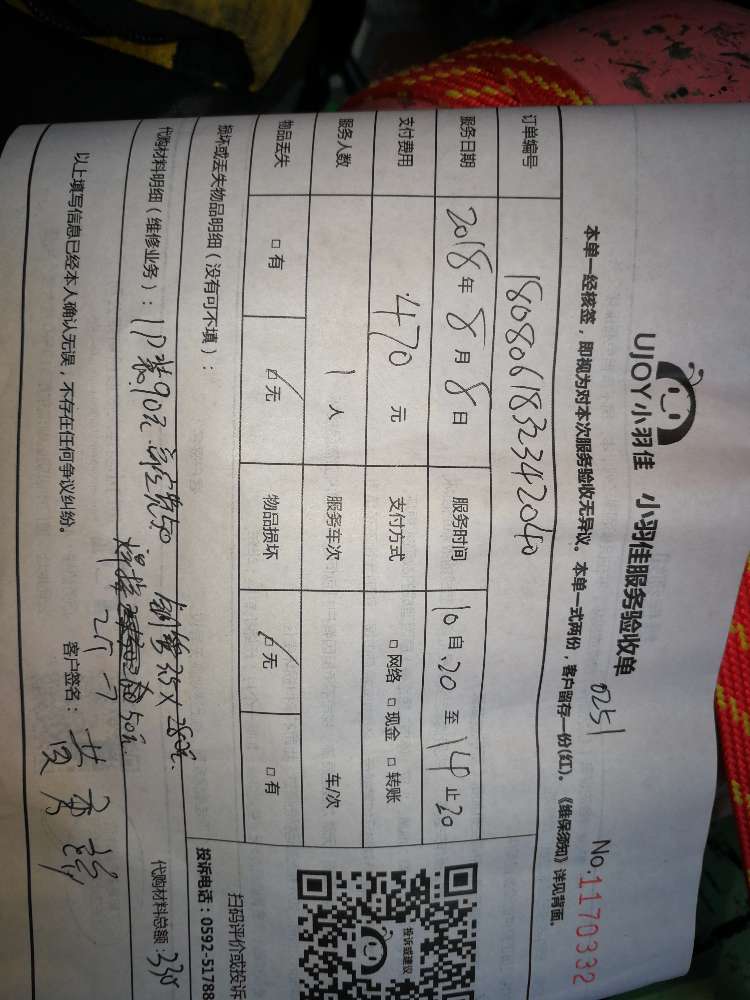 UJOY小羽佳 小羽佳服务验收单
0251
No:1170332
本单一经核签，即视为对本次服务验收无异议。本单一式两份，客户留存一份(红)。《维保须知》详见背面。
订单编号 1808061832342040
服务日期 2018年8月8日 服务时间 10自.20至14止20
支付费用 470元 支付方式 □网络 □现金 □转账
服务人数 1人 服务车次 车/次
物品丢失 □有 □无 物品损坏 □无 □有
损坏或丢失物品明细（没有可不填）：
代购材料明细（维修业务）：1P装90元.
代购材料总额:330
以上填写信息已经本人确认无误，不存在任何争议纠纷。
客户签名：
投诉或建议
扫码评价或投诉
投诉电话：0592-51788